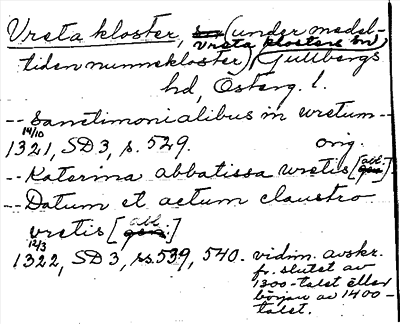 Vreta kloster, (under medel-
Vreta klosters sn,
tiden nunnekloster), Gullbergs
hd, Österg. l.
-- Sanctimonialibus in wretum --
14/10
1321, SD 3, s. 529. orig.
-- Katerina abbatissa wretis [abl.]
-- Datum et actum claustro
wretis [abl.]
12/3
1322, SD 3, ss. 539, 540. vidim. avskr.
fr. slutet av
1300-talet eller
början av 1400-
talet.